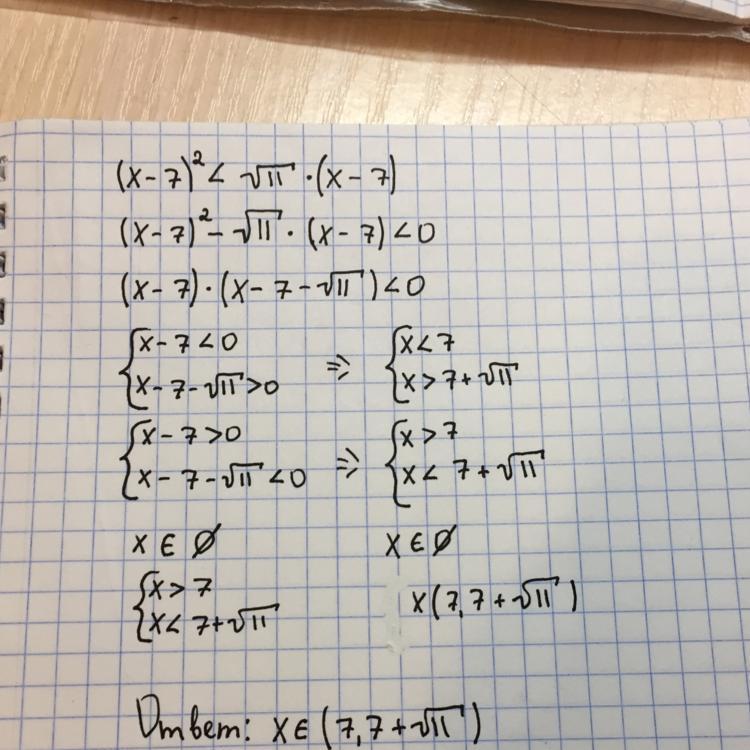 (x-7)² < √11 · (x-7)
(x-7)² - √11 · (x-7) < 0
(x-7) · (x-7-√11) < 0
{ x-7 < 0 ⇒ { x < 7
{ x-7-√11 > 0 { x > 7+√11
{ x-7 > 0 ⇒ { x > 7
{ x-7-√11 < 0 { x < 7+√11
x ∈ ∅ x ∈ ∅
{ x > 7
{ x < 7+√11 x(7,7+√11)
Ответ: x ∈ (7,7+√11)